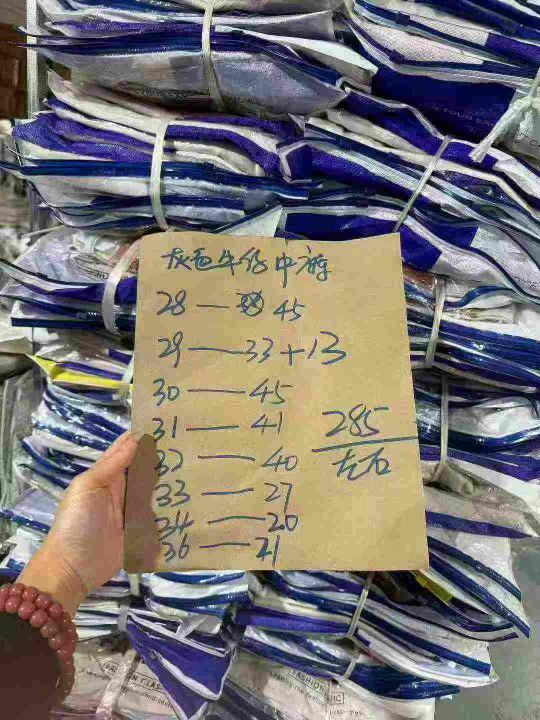 灰色牛仔中裤
28 — 45
29 — 33+13
30 — 45
31 — 41
32 — 40
33 — 27
34 — 20
36 — 21
285
左右
FASHION